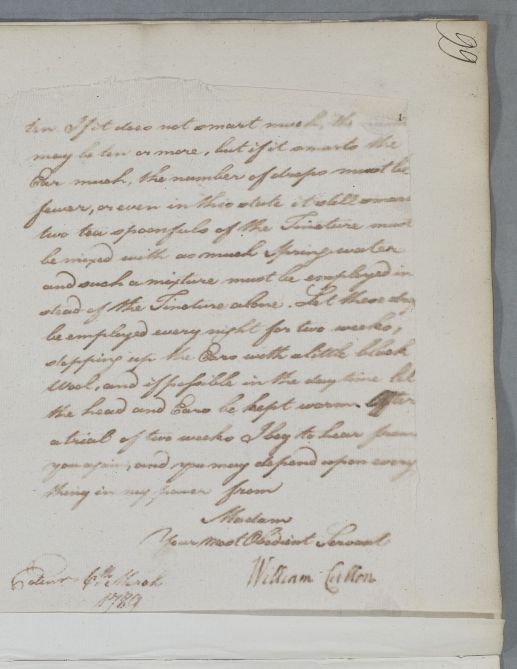 99
ten. If it does not smart much, the
may be ten or more, but if it smarts the
Ear much, the number of drops must be
fewer, or even in this state it still smart
two tea spoonfuls of the Tincture must
be mixed with as much Spring water
and such a mixture must be employed in
stead of the Tincture alone. Let these drops
be employed every night for two weeks,
stopping up the Ears with a little black
Wool, and if possible in the day time let
the head and Ears be kept warm. After
a trial of two weeks I beg to hear from
you again, and you may depend upon every
thing in my power from
Madam
Your most Obedient Servant
William Cullen
6th March
1789